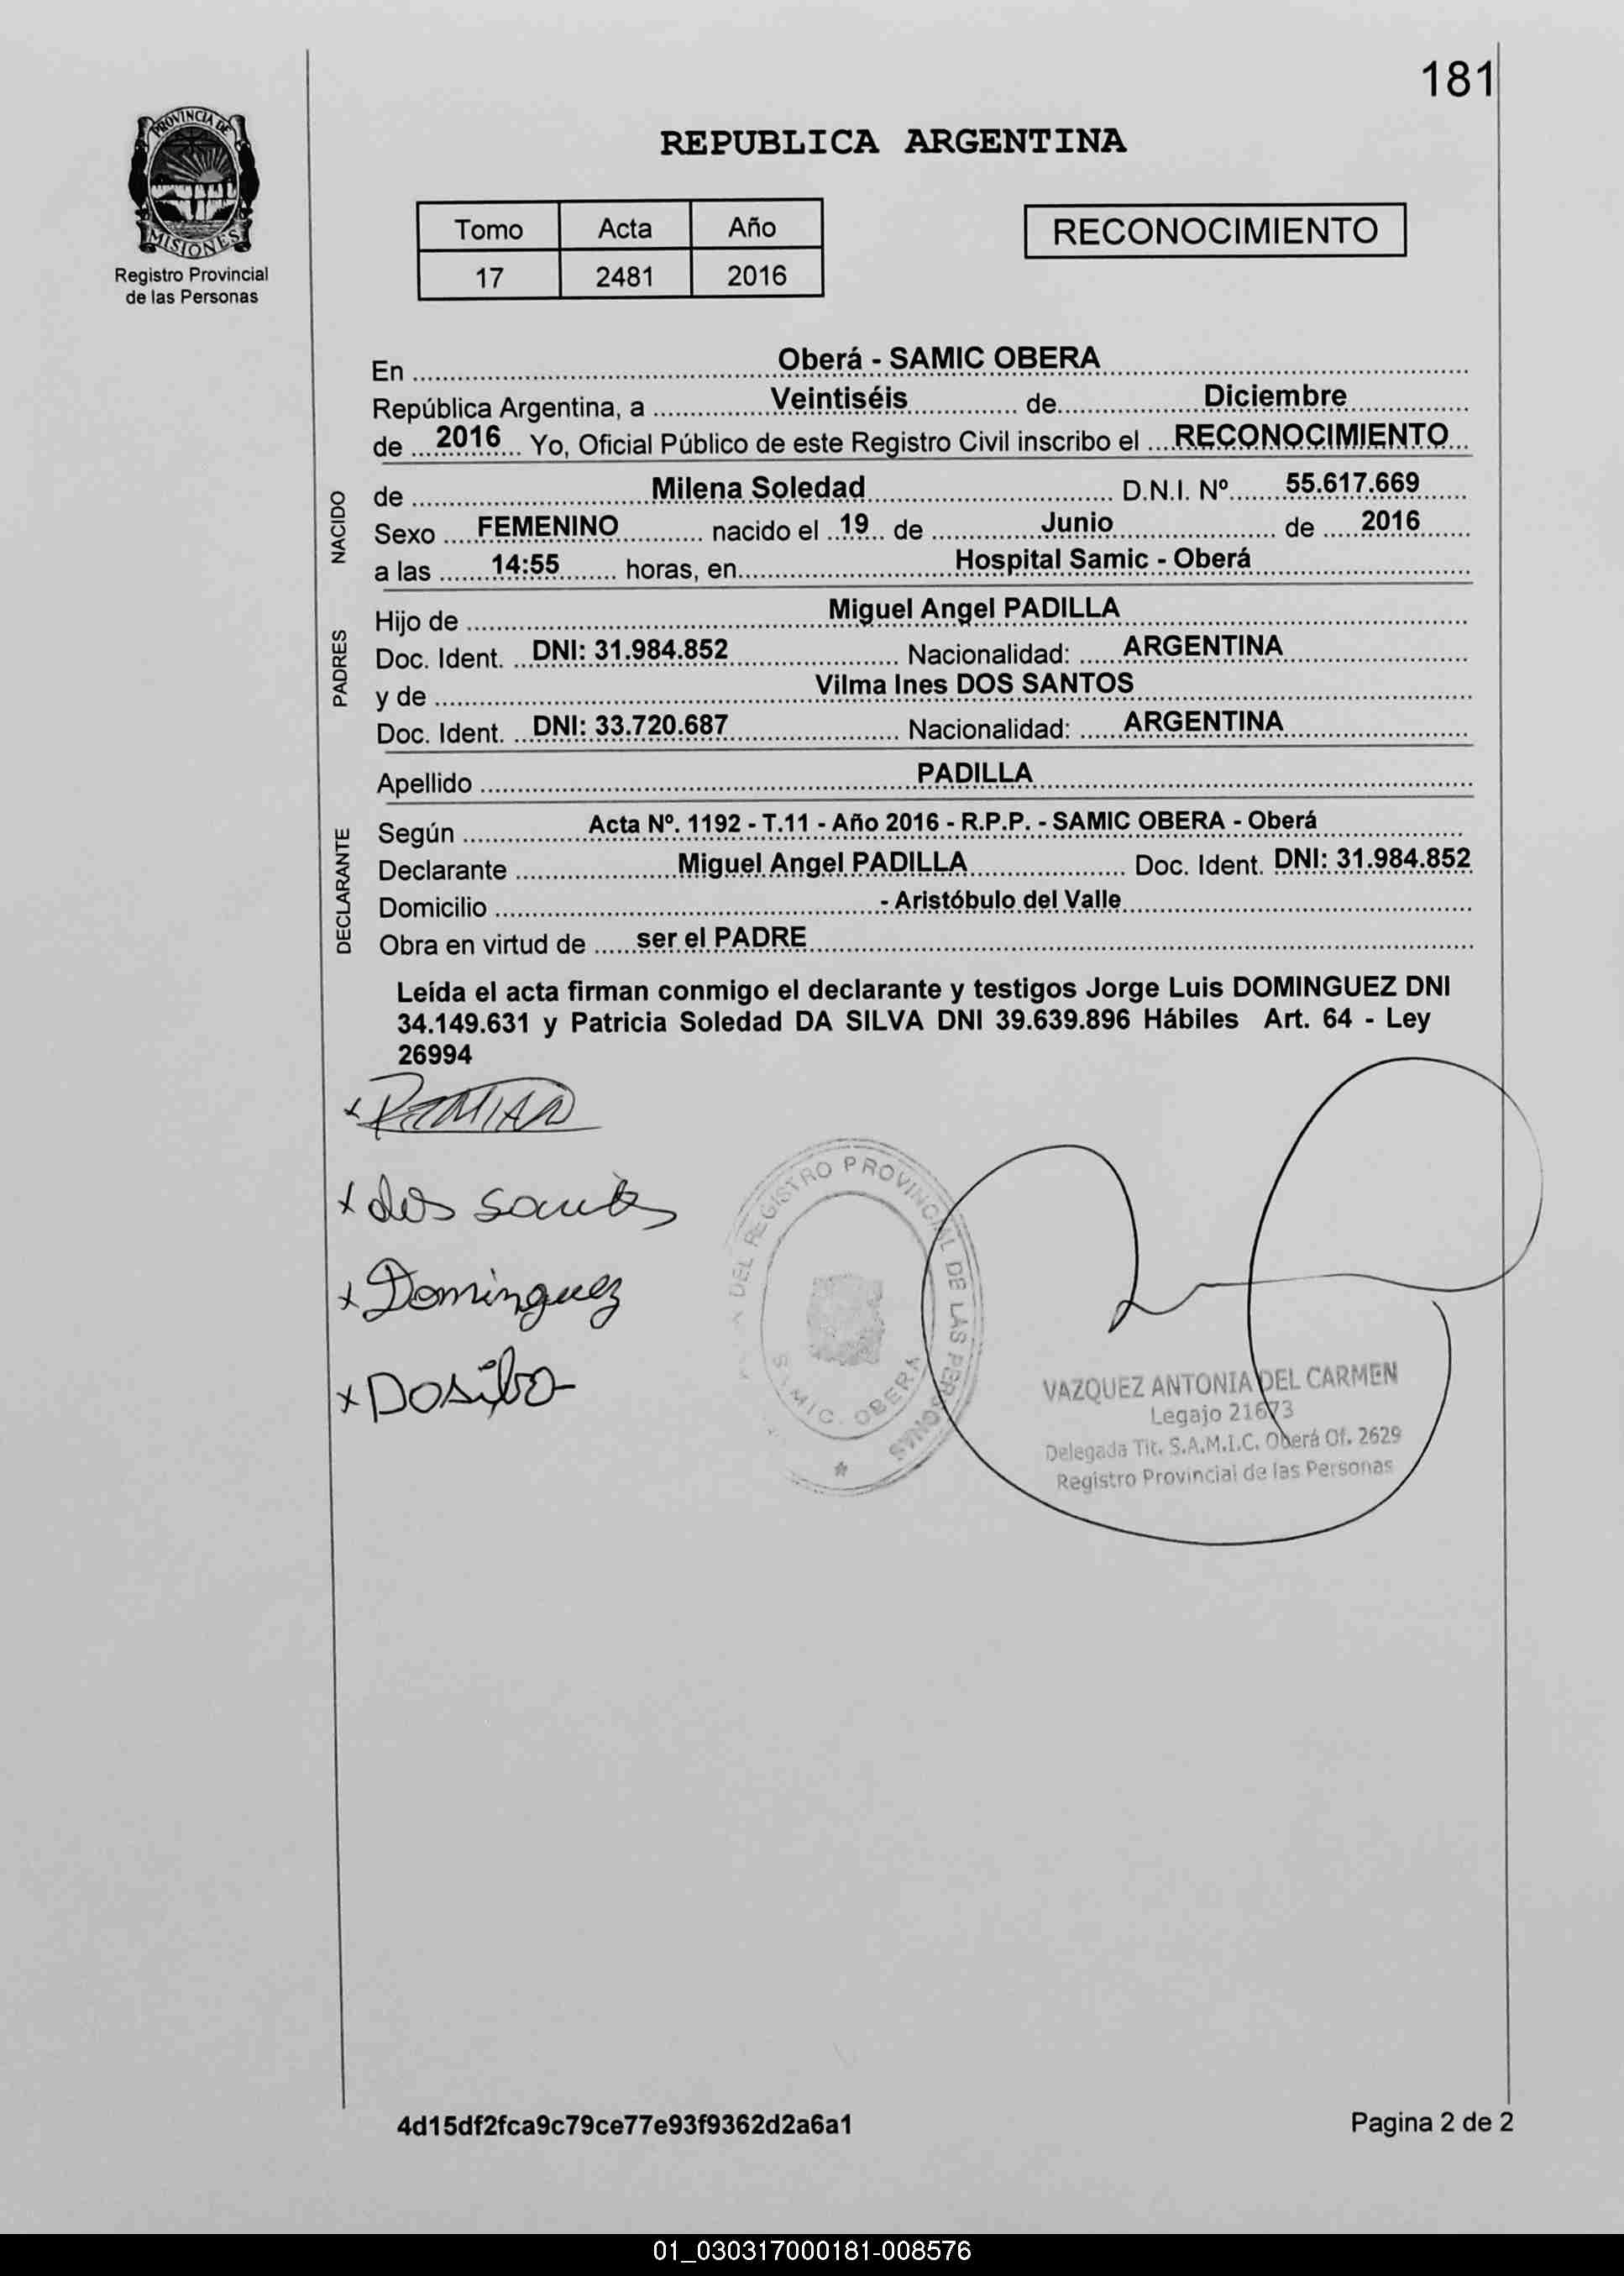 181
PROVINCIA DE
MISIONES
Registro Provincial
de las Personas
REPUBLICA ARGENTINA
Tomo Acta Año
17 2481 2016
RECONOCIMIENTO
En Oberá - SAMIC OBERA
República Argentina, a Veintiséis de Diciembre
de 2016 Yo, Oficial Público de este Registro Civil inscribo el RECONOCIMIENTO
NACIDO
de Milena Soledad D.N.I. Nº 55.617.669
Sexo FEMENINO nacido el 19 de Junio de 2016
a las 14:55 horas, en Hospital Samic - Oberá
PADRES
Hijo de Miguel Angel PADILLA
Doc. Ident. DNI: 31.984.852 Nacionalidad: ARGENTINA
y de Vilma Ines DOS SANTOS
Doc. Ident. DNI: 33.720.687 Nacionalidad: ARGENTINA
Apellido PADILLA
DECLARANTE
Según Acta Nº. 1192 - T.11 - Año 2016 - R.P.P. - SAMIC OBERA - Oberá
Declarante Miguel Angel PADILLA Doc. Ident. DNI: 31.984.852
Domicilio - Aristóbulo del Valle
Obra en virtud de ser el PADRE
Leída el acta firman conmigo el declarante y testigos Jorge Luis DOMINGUEZ DNI
34.149.631 y Patricia Soledad DA SILVA DNI 39.639.896 Hábiles Art. 64 - Ley
26994
x dos santos
x Dominguez
x Dasilva
DEL REGISTRO PROVINCIAL DE LAS PERSONAS
OBERA
VAZQUEZ ANTONIA DEL CARMEN
Legajo 21673
Delegada Tit. S.A.M.I.C. Oberá Of. 2629
Registro Provincial de las Personas
4d15df2fca9c79ce77e93f9362d2a6a1
Pagina 2 de 2
01_030317000181-008576